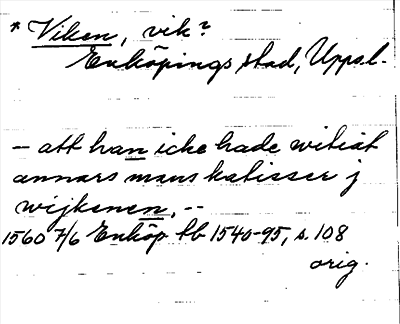 * Viken, vik?
Enköpings stad, Uppsl.
– att han icke hade witiat
annars mans katisser j
wijkenen, --
1560 7/6 Enköp tb 1540-95, s. 108
orig.